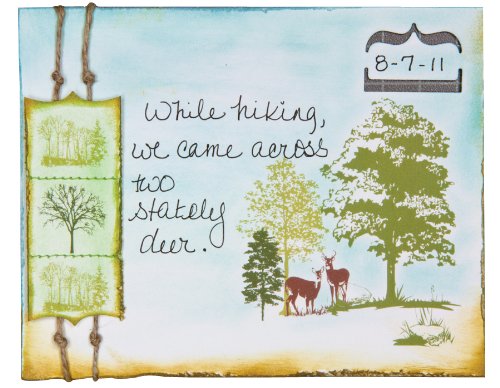 8-7-11
While hiking,
we came across
two
stately
deer.